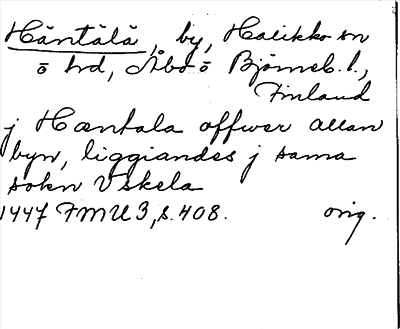 Häntälä, by, Halikko sn
o hd, Åbo o Björneb. l.,
Finland
j Hæntala offwer allan
byn, liggiandes j sama
sokn Vskela
1447 FMU 3, s. 408. orig.